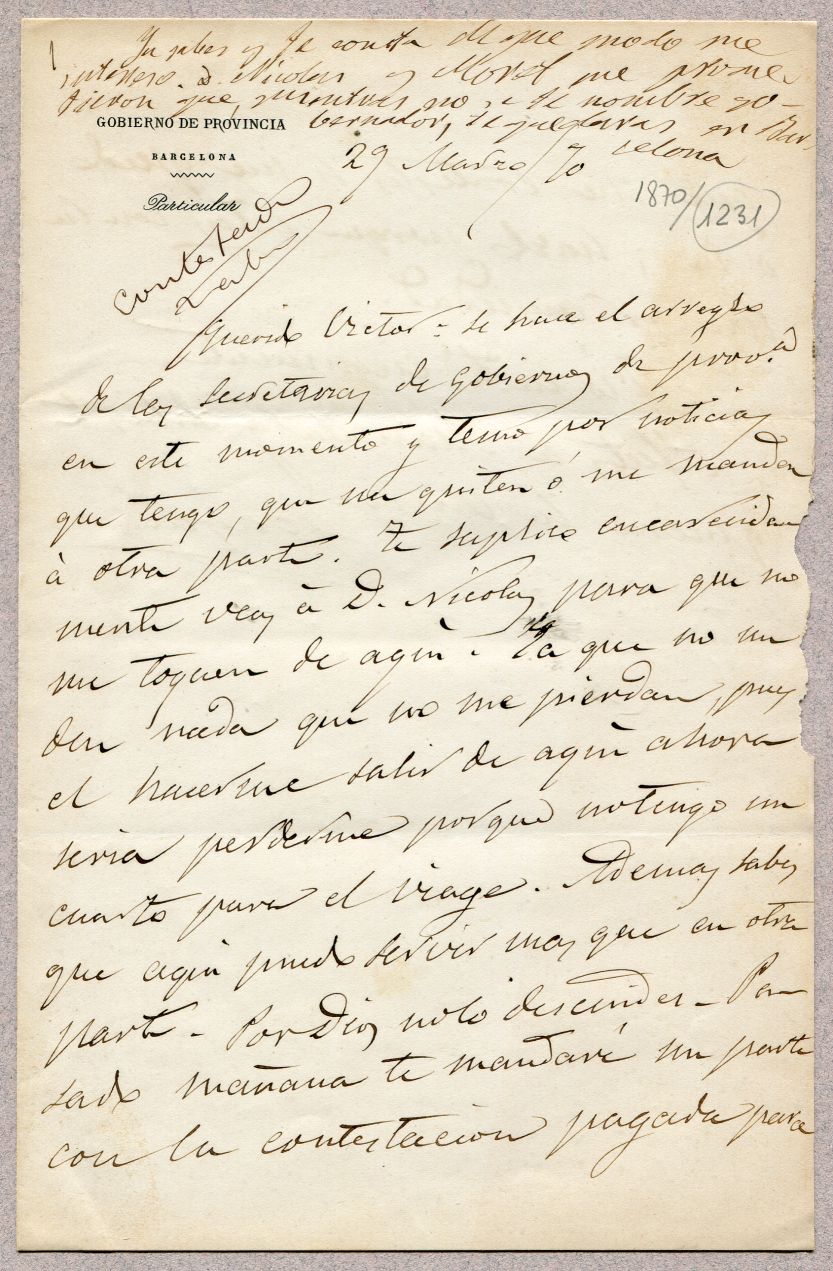 Ya sabes y te consta de que modo me
intereso. D. Nicolas y Moret me prome-
tieron que, mientras no se te nombre go-
bernador, te quedaras en Bar-
celona
GOBIERNO DE PROVINCIA
BARCELONA
Particular
29 Marzo/70
1870/1231
contestada
Querido Victor = se hace el arreglo
de las secretarias de Gobiernos de prov.a
en este momento y temo por noticias
que tengo, que me quiten ó me manden
á otra parte. Te suplico encarecida-
mente veas á D. Nicolas para que no
me toquen de aqui. Ya que no me
den nada que no me pierdan, pues
el hacerme salir de aqui ahora
seria perderme porque no tengo un
cuarto para el viage. Ademas sabes
que aqui puedo servir mas que en otra
parte - Por Dios no lo descuides - Pa-
sado mañana te mandaré un parte
con la contestacion pagada para